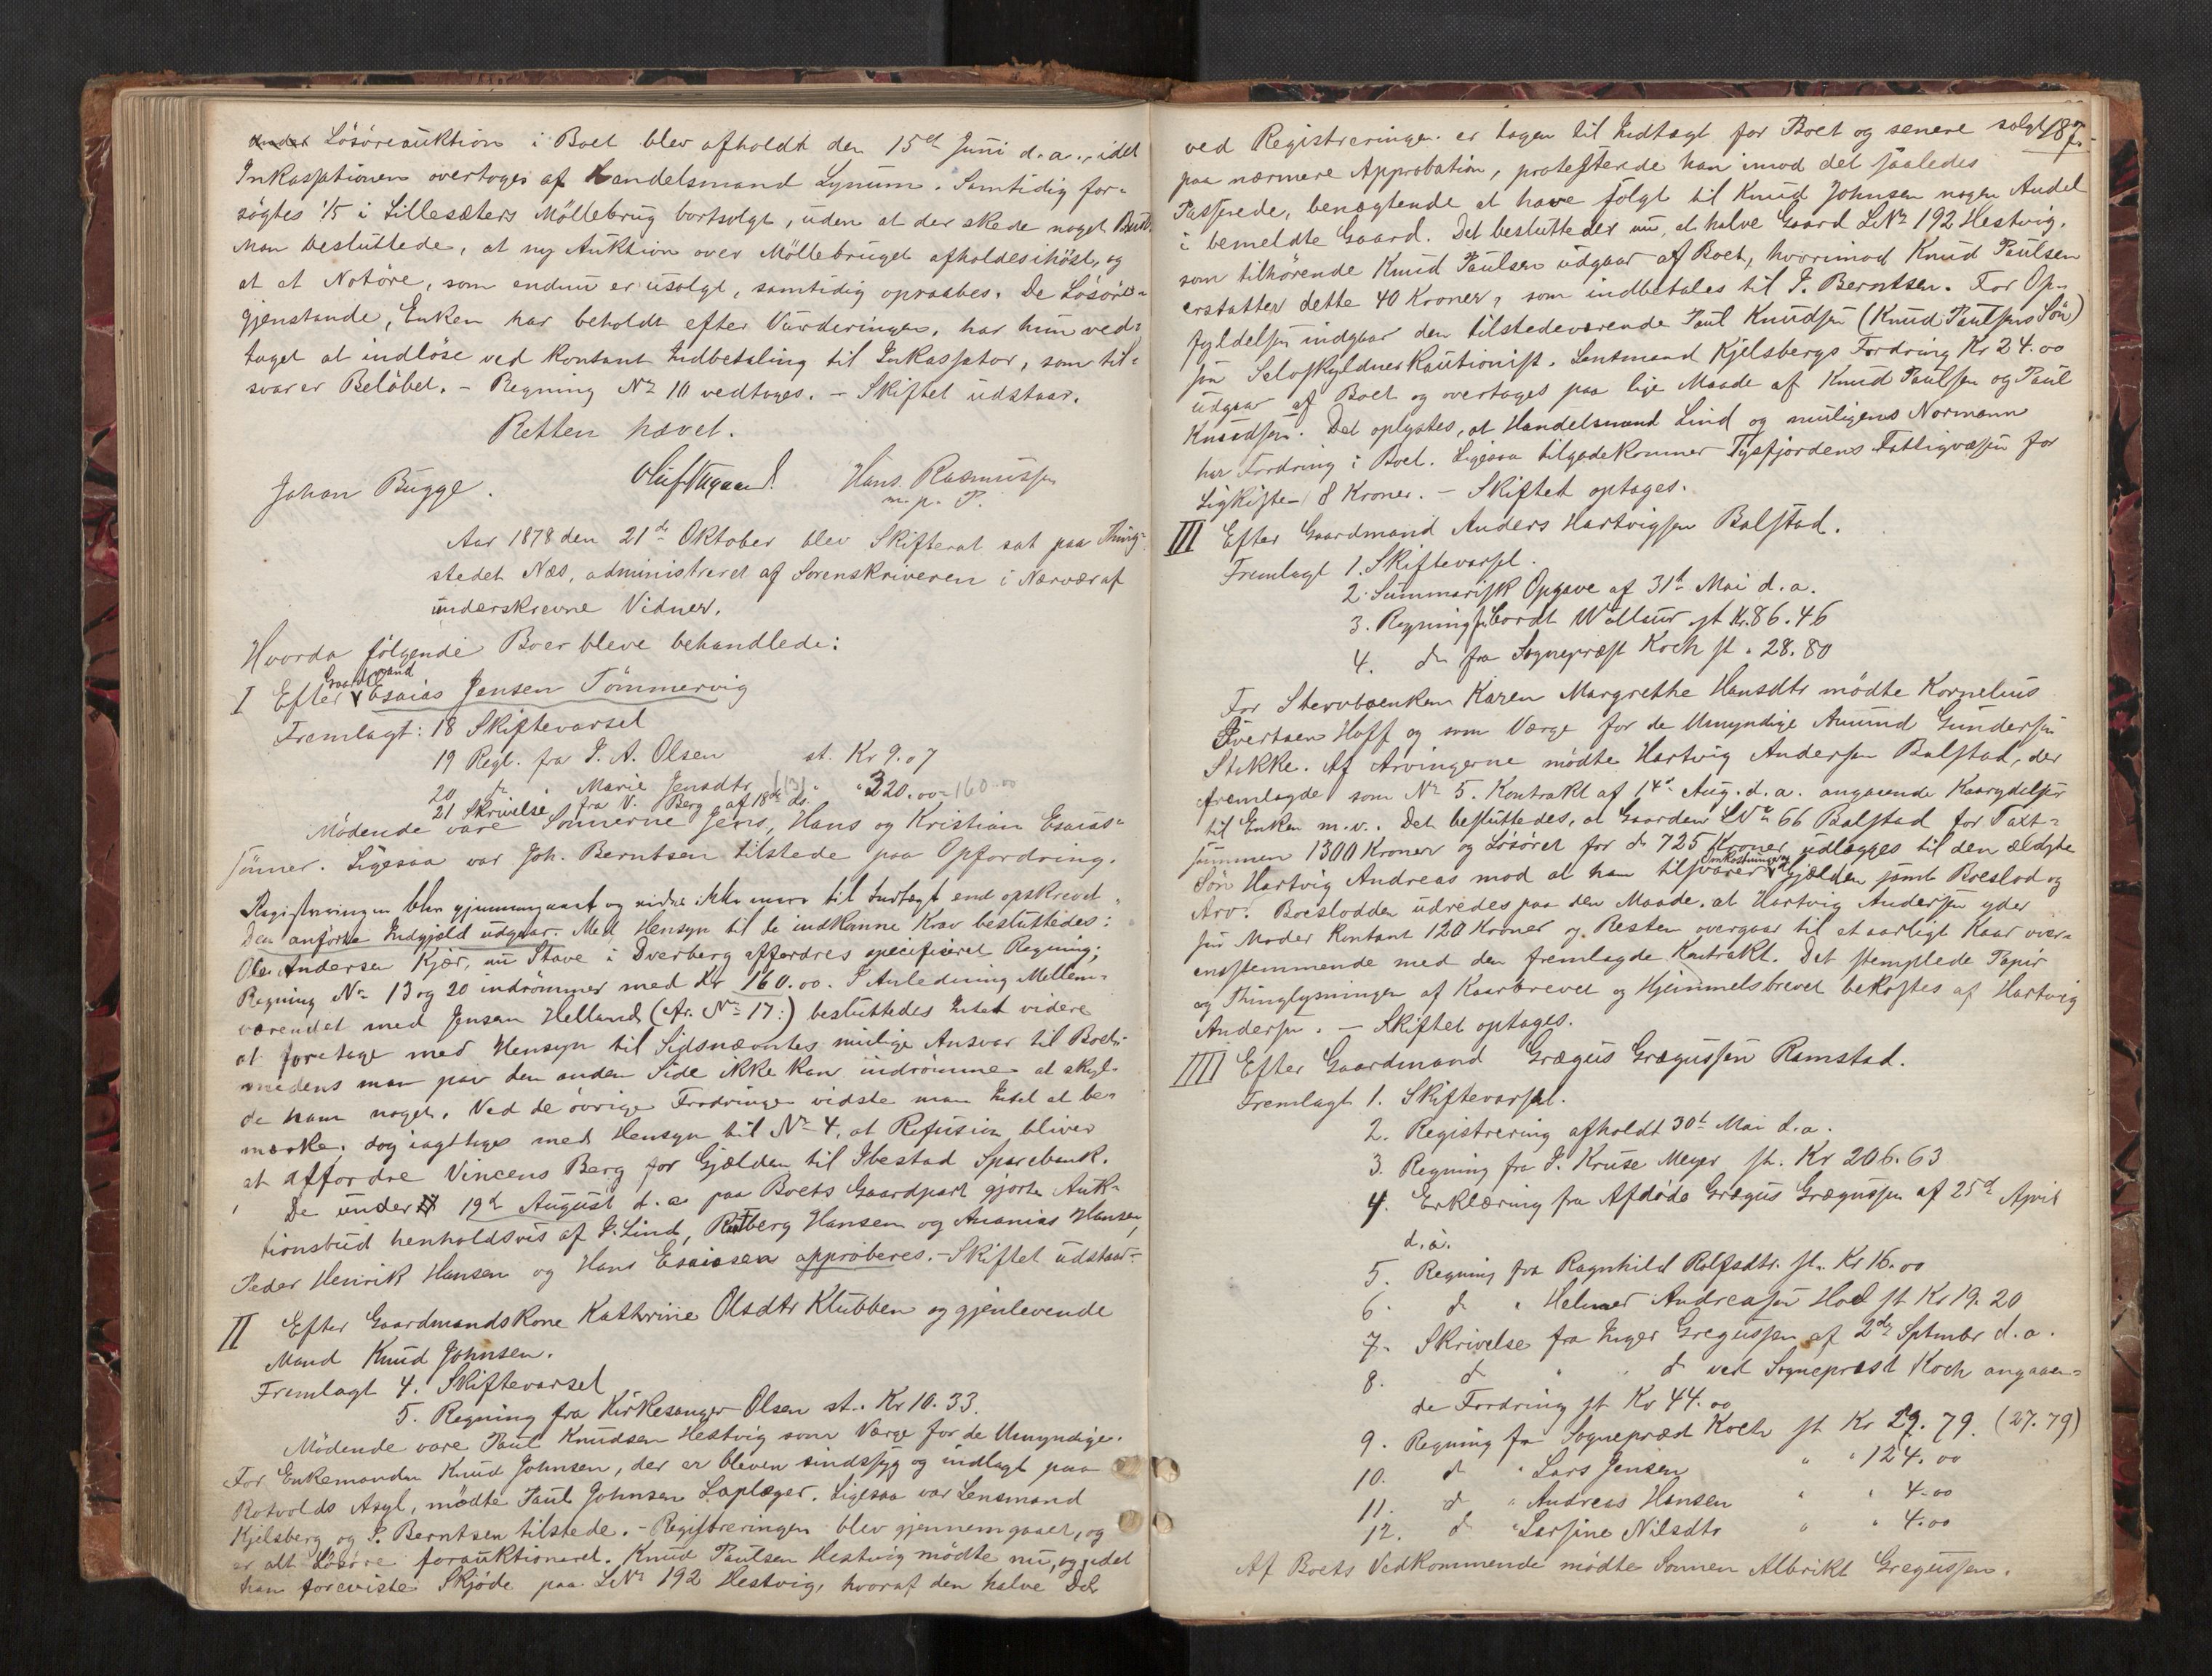 Lösöreauktion i Boet blev afholdt den 15de Juni d.a., idet
Inkassationen overtoges af Handelsmand Lynum. Samtidig for-
søgtes 1/5 i Lillesæters Möllebrug bortsolgt, uden at der skede noget Bud.
Man besluttede, at ny Auktion over Möllebruget afholdes ihöst, og
at et Notöre, som endnu er usolgt, samtidig opraabes. De Lösöre-
gjenstande, Enken har beholdt efter Vurderingen, har hun ved-
taget at indlöse ved kontant Indbetaling til Inkassator, som til-
svarer Belöbet. - Regning No 10 vedtages. - Skiftet udstaar.
Retten hævet.
Johan Bugge. Hans Rasmussen
m. p. P.
Aar 1878 den 21de Oktober blev Skifteret sat paa Thing-
stedet Næs, administreret af Sorenskriveren i Nærvær af
underskrevne Vidner.
Hvorda følgende Boer bleve behandlede:
Gaardmand
I Efter Esaias Jensen Tömmervig
Fremlagt: 18 Skiftevarsel
19 Regl. fra J. A. Olsen st. Kr 9.07
20 do " Marie Jensdtr (13) " " 320.00 160.00
21 Skrivelse fra V. Berg af 18de ds.
Mødende vare Sønnerne Jens, Hans og Kristian Esaias-
sönner. Ligesaa var Joh. Berntsen tilstede paa Opfordring.
Registreringen blev gjennemgaaet og vides ikke mere til Indtægt end opskrevet.
Den anførte Indgjæld udgaar. Med Hensyn til de indkomne Krav besluttedes:
Ole Andersen Kjær, nu Stave i Dverberg affordres specificeret Regning;
Regning No 13 og 20 indrömmes med Kr 160.00. I Anledning Mellem-
værendet med Jensen Helland (cfr. No 17:) besluttedes Intet videre
at foretage med Hensyn til Sidsnævntes mulige Ansvar til Boet,
medens man paa den anden Side ikke kan indrömme at skyl-
de ham noget. Ved de övrige Fordringer vidste man Intet at be-
mærke; dog iagttages med Hensyn til No 4, at Refusion bliver
at affordre Vincens Berg for Gjælden til Ibestad Sparebank.
De under 19de August d.a. paa Boets Gaardpart gjorte Auk-
tionsbud henholdsvis af J. Lind, Rutberg Hansen og Ananias Hansen,
Peder Henrik Hansen og Hans Esaiasen approberes. - Skiftet udstaar.
II Efter Gaardmandskone Kathrine Olsdtr Klubben og gjenlevende
Mand Knud Johnsen.
Fremlagt 4. Skiftevarsel
5. Regning fra Kirkesanger Olsen st. Kr 10.33.
Mödende vare Paul Knudsen Hestvig som Værge for de Umyndige.
For Enkemanden Knud Johnsen, der er bleven sindssyg og indlagt paa
Rotvolds Asyl, mödte Paul Johnsen Laplæger. Ligesaa var Lensmand
Kjelsberg og P. Berntsen tilstede. - Registreringen blev gjennemgaaet, og
er alt Lösöre forauktioneret. Knud Paulsen Hestvig mödte nu, og idet
han foreviste Skjöde paa LNo 192 Hestvig, hvoraf den halve Del
187.
ved Registreringen er tagen til Indtægt for Boet og senere solgt
paa nærmere Approbation, protesterede han imod det saaledes
Passerede, benægtende at have solgt til Knud Johnsen nogen Andel
i bemeldte Gaard. Det besluttedes nu, at halve Gaard LNo 192 Hestvig,
som tilhörende Knud Paulsen udgaar af Boet, hvorimod Knud Paulsen
erstatter dette 40 Kroner, som indbetales til P. Berntsen. For Op-
fyldelsen indgaar den tilstedeværende Paul Knudsen (Knud Paulsens Sön)
som Selvskyldnerkautionist. Lensmand Kjelsbergs Fordring Kr 24.00
udgaar af Boet og overtages paa lige Maade af Knud Paulsen og Paul
Knudsen. Det oplystes, at Handelsmand Lind og muligens Normann
har Fordring i Boet. Ligesaa tilgodekommer Tysfjordens Fattigvæsen for
Ligkiste 8 Kroner. - Skiftet optages.
III Efter Gaardmand Anders Hartvigsen Balstad.
Fremlagt 1. Skiftevarsel.
2. Summarisk Opgave af 31te Mai d.a.
3. Regning fr. Cordt Wollsur st Kr. 86.46
4. do fra Sognepræst Koch st. 28.80
For Stervboenken Karen Margrethe Hansdtr mödte Kornelius
Evertsen Hoff og som Værge for de Umyndige Amund Gundersen
Stokke. Af Arvingerne mödte Hartvig Andersen Balstad, der
fremlagde som No 5. Kontrakt af 14de Aug. d.a. angaaende Kaarydelser
til Enken m.v. Det besluttedes, at Gaarden LNo 66 Balstad for Taxt-
summen 1300 Kroner og Lösöret for do 725 Kroner udlægges til den ældste
Omkostninger
Sön Hartvig Andreas mod at han tilsvarer Gjælden samt Boeslod og
Arv. Boeslodden udredes paa den Maade, at Hartvig Andersen yder
sin Moder kontant 120 Kroner og Resten overgaar til et aarligt Kaar over-
ensstemmende med den fremlagde Kontrakt. Det stemplede Papir
og Thinglysningen af Kaarbrevet og Hjemmelsbrevet bekostes af Hartvig
Andersen. - Skiftet optages.
IIII Efter Gaardmand Grægus Grægussen Ramstad.
Fremlagt 1. Skiftevarsel.
2. Registrering afholdt 30te Mai d.a.
3. Regning fra J. Kruse Meyer st. Kr 206.63
4. Erklæring fra Afdöde Grægus Grægussen af 25de April
d.a.
5. Regning fra Ragnhild Rolfsdtr. st. Kr 16.00
6. do " Helmer Andreasen Hol st Kr 19.20
7. Skrivelse fra Inger Gregussen af 2den Sptmbr d.a.
8. do " " do ved Sognepræst Koch angaaen-
de Fordring st Kr 44.00
9. Regning fra Sognepræst Koch st Kr 29.79. (27.79)
10. do " Lars Jensen " " 124.00
11. do " Andreas Hansen " " 4.00
12. do " Larsine Nilsdtr " " 4.00
Af Boets Vedkommende mödte Sönnen Albrikt Gregussen.